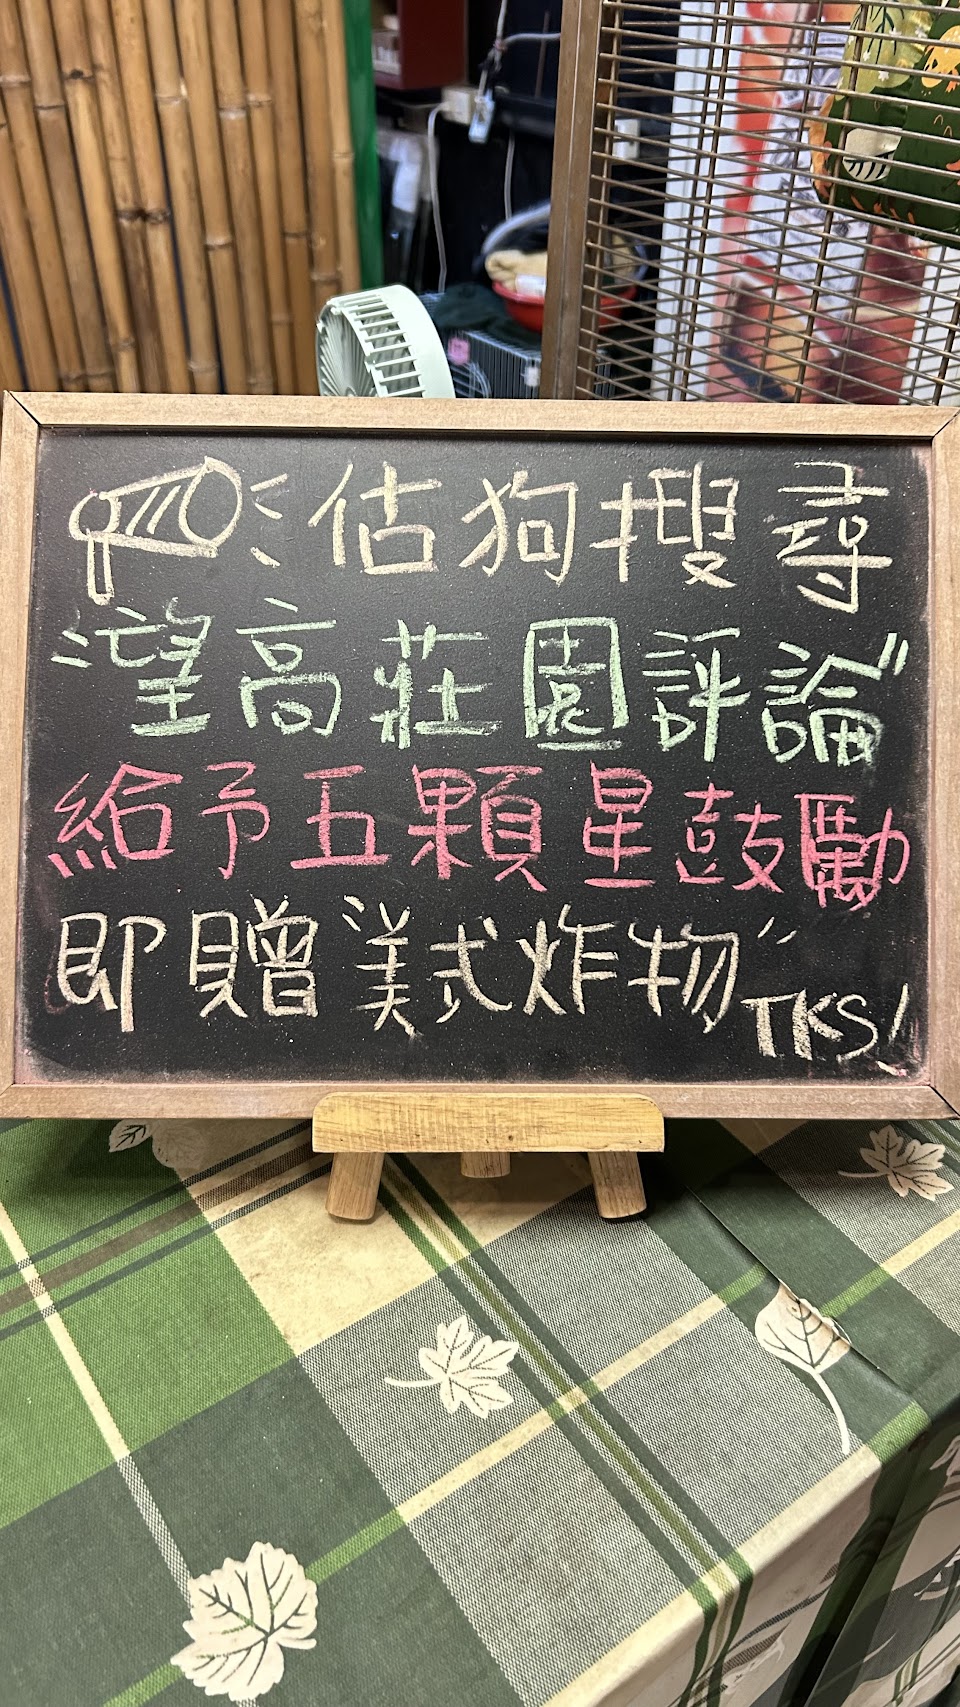 估狗搜尋
"望高莊園評論"
給予五顆星鼓勵
即贈"美式炸物"
TKS!